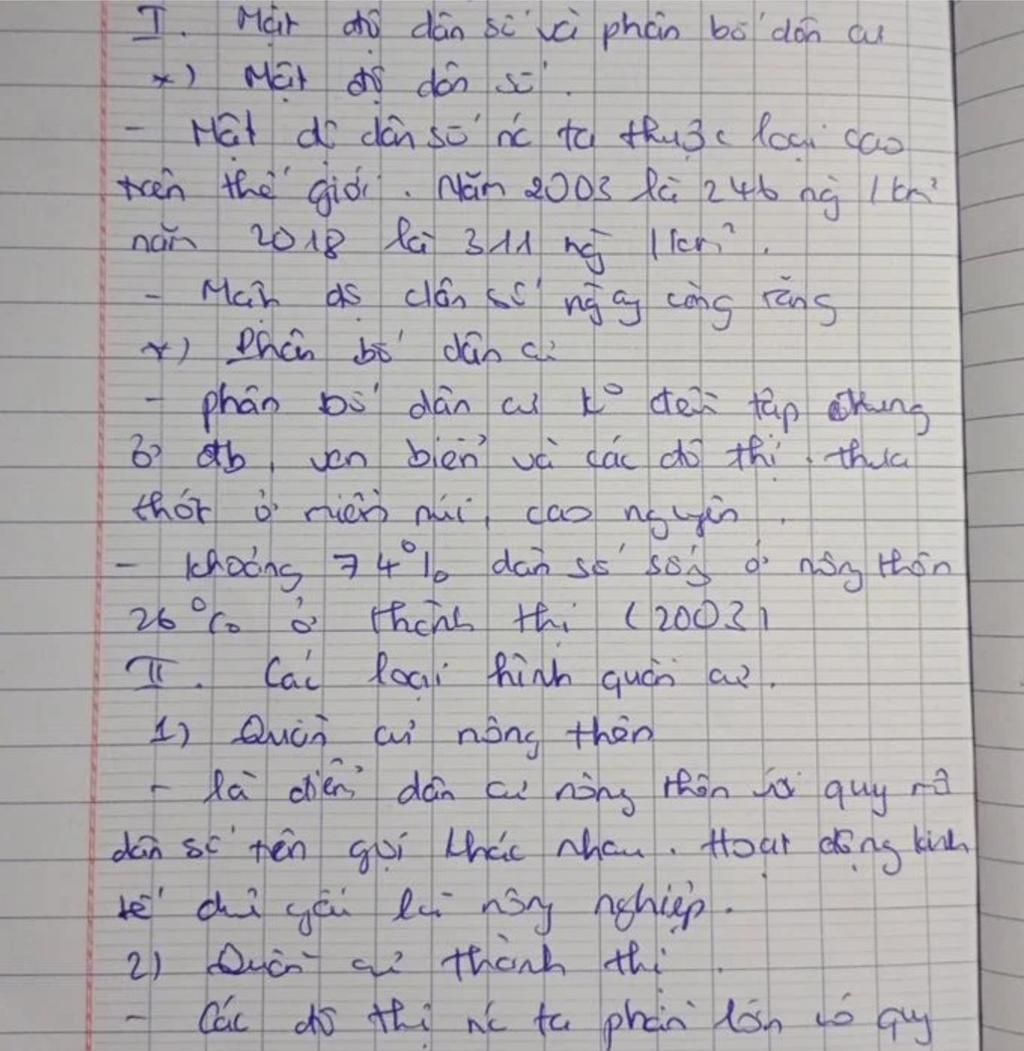 I. Mật độ dân số và phân bố dân cư
*) Mật độ dân số.
- Mật độ dân số nc ta thuộc loại cao
trên thế giới. Năm 2003 là 246 ng / km²
năm 2018 là 311 ng / km².
- Mật độ dân số ngày càng tăng
*) Phân bố dân cư
- phân bố dân cư k° đều tập trung
ở đb, ven biển và các đô thị, thưa
thớt ở miền núi, cao nguyên.
- khoảng 74% dân số sống ở nông thôn
26% ở thành thị (2003)
II. Các loại hình quần cư.
1) Quần cư nông thôn
- là điểm dân cư nông thôn với quy mô
dân số tên gọi khác nhau. Hoạt động kinh
tế chủ yếu là nông nghiệp.
2) Quần cư thành thị.
- Các đô thị nc ta phần lớn có quy